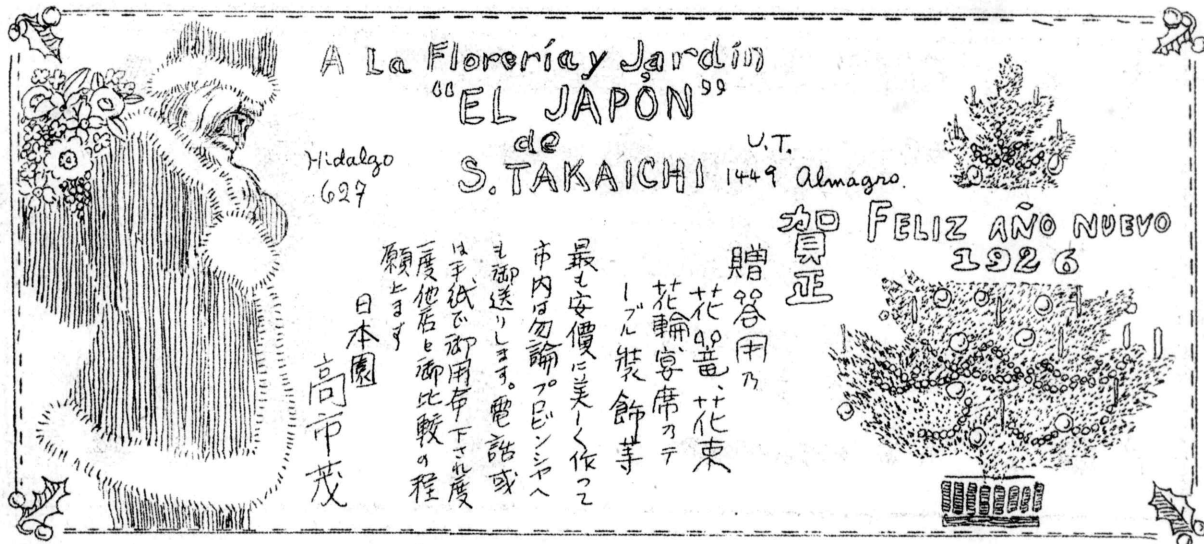 A La Florería y Jardín
"EL JAPÓN"
de
S. TAKAICHI
Hidalgo
627
U.T.
1449 Almagro.
FELIZ AÑO NUEVO
1926
賀正
贈答用乃
花篭、花束
花輪、宴席乃テ
ーブル装飾等
最も安價に美しく作つて
市内は勿論プロビンシヤへ
も御送りします。電話或
は手紙で御用命下され度
一度他店と御比較の程
願上ます
日本園
高市茂